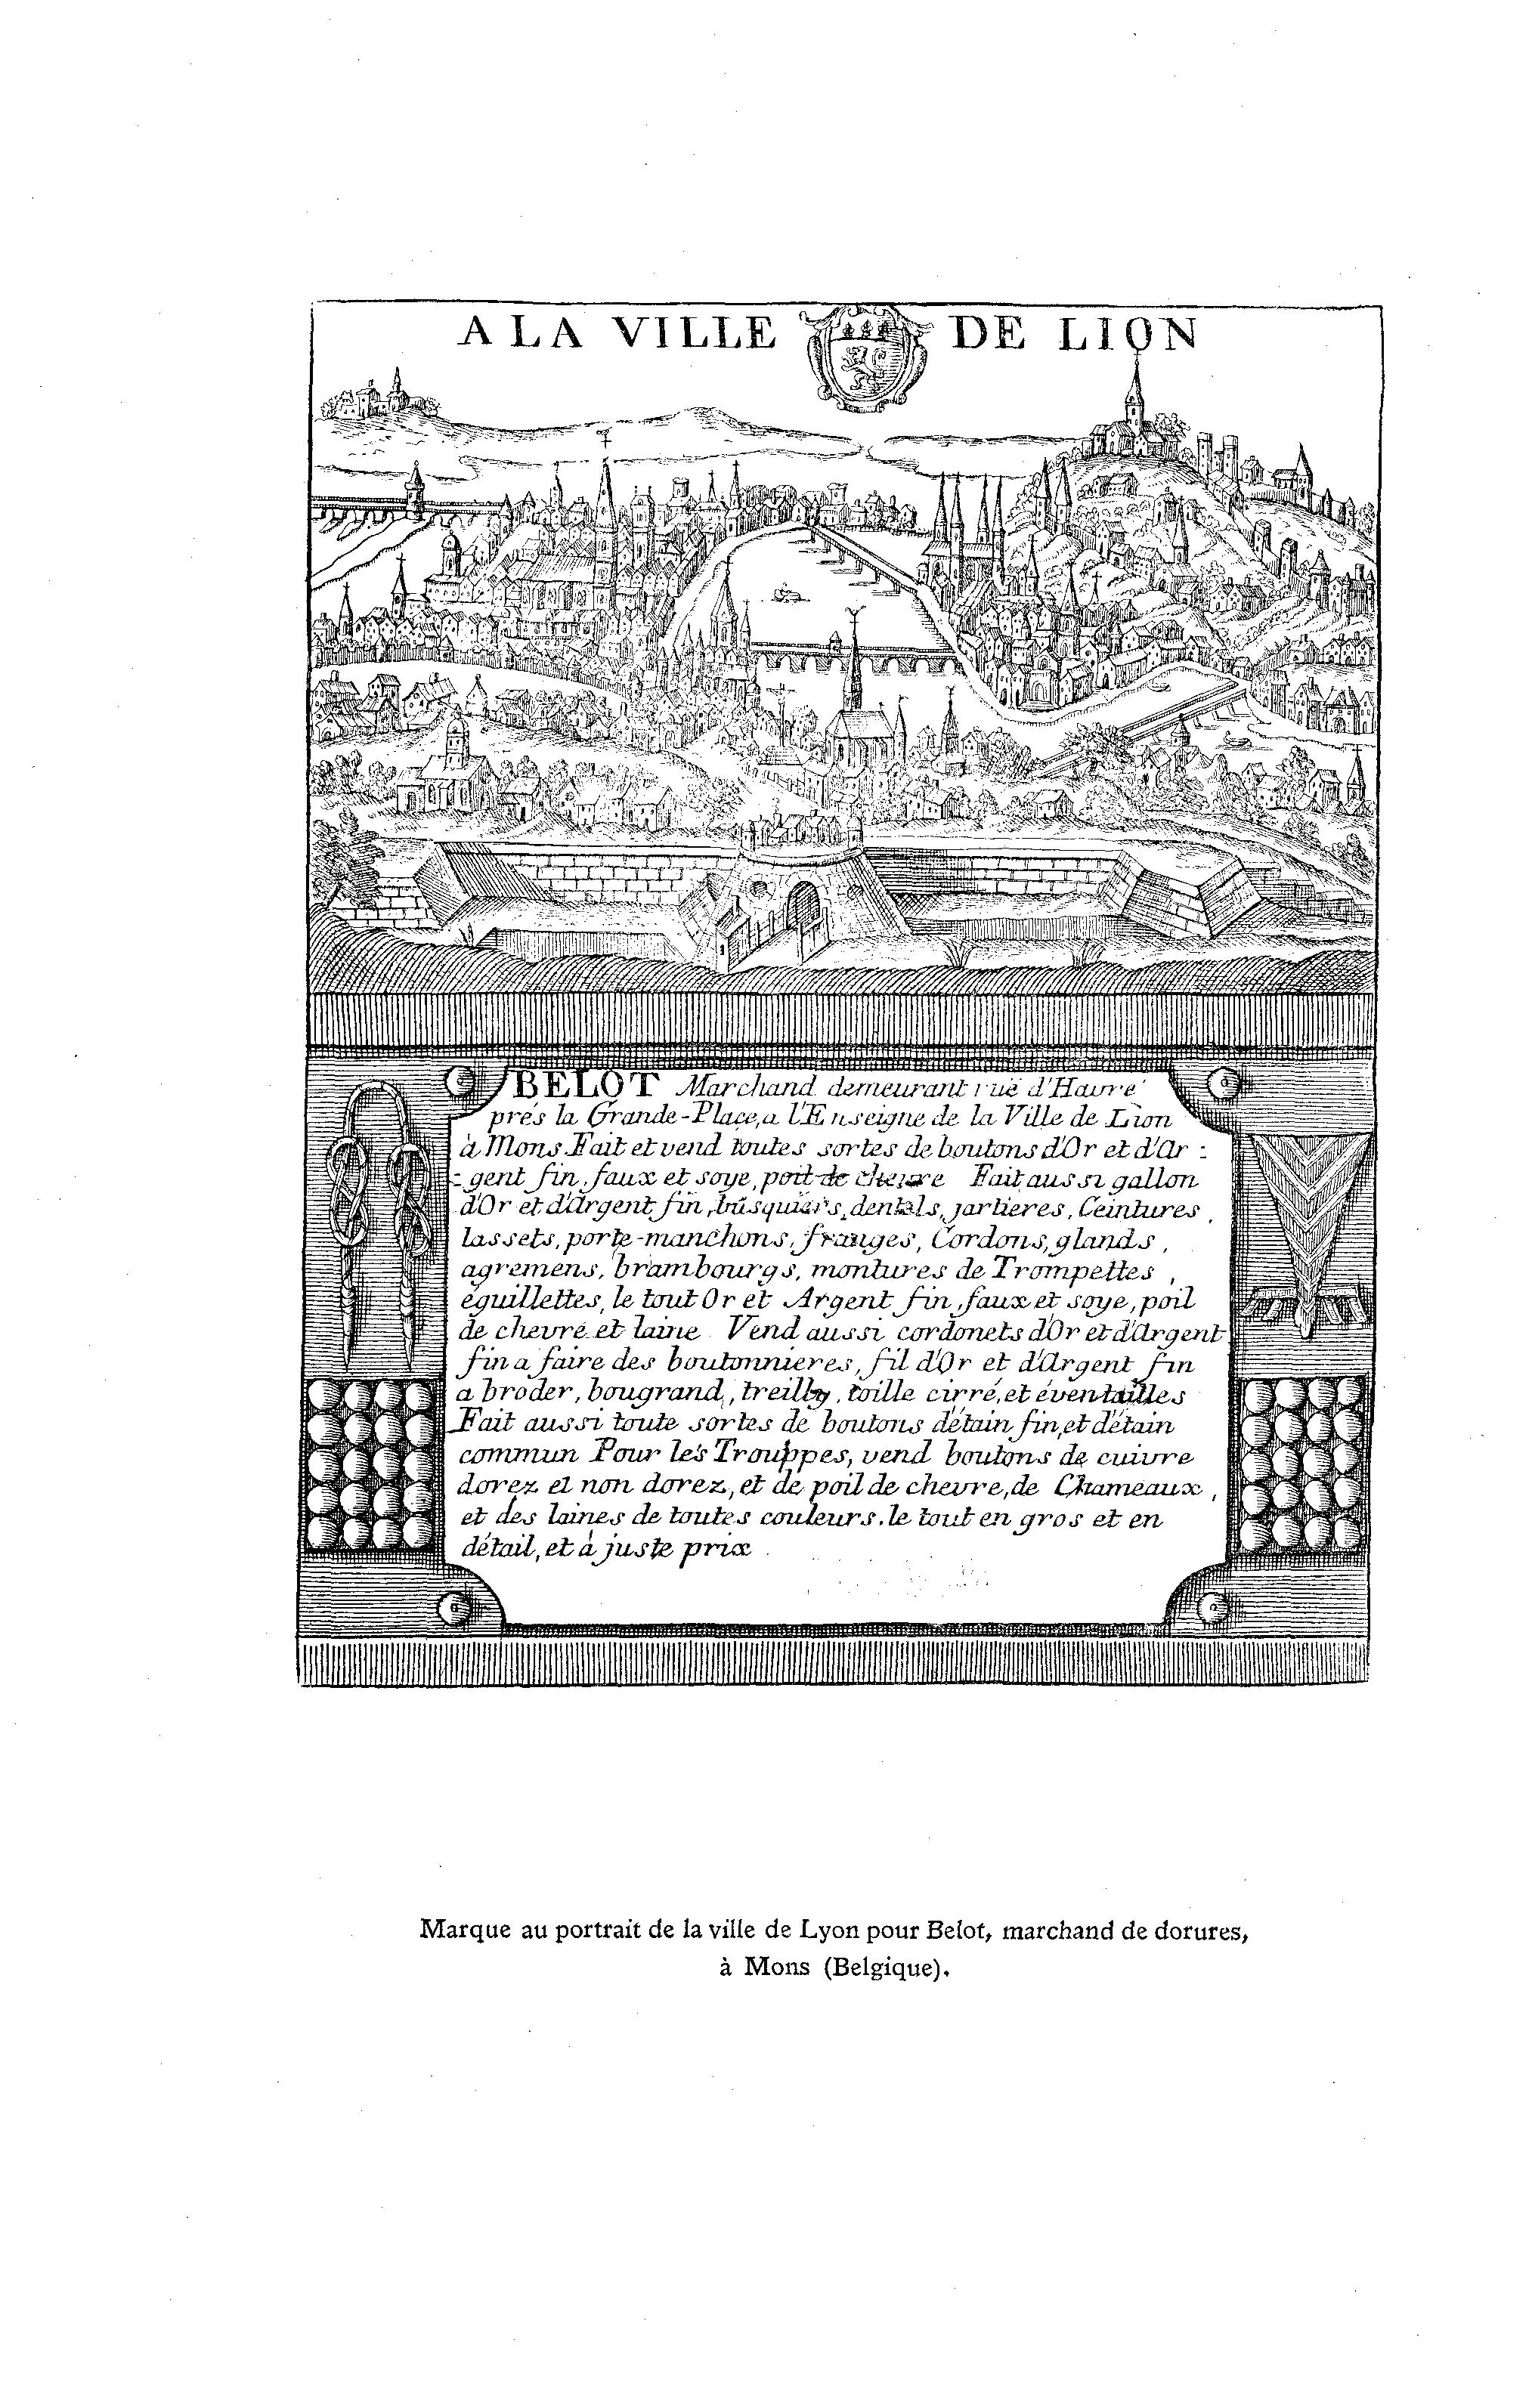 A LA VILLE DE LION
BELOT Marchand demeurant ruë d'Havré
prés la Grande-Place, a l'Enseigne de la Ville de Lion
à Mons. Fait et vend toutes sortes de boutons d'Or et d'Ar :
-gent fin, faux et soye, poil de chevre Fait aussi gallon
d'Or et d'Argent fin, busquiers, dentels, jartieres, Ceintures,
lassets, porte-manchons, franges, Cordons, glands,
agremens, brambourgs, montures de Trompettes,
eguillettes, le tout Or et Argent fin, faux et soye, poil
de chevre et laine Vend aussi cordonets d'Or et d'Argent
fin a faire des boutonnieres, fil d'Or et d'Argent fin
a broder, bougrand, treilly, toille cirré, et éventailles
Fait aussi toute sortes de boutons détain fin, et détain
commun Pour les Trouppes, vend boutons de cuivre
dorez et non dorez, et de poil de chevre, de Chameaux,
et des laines de toutes couleurs. le tout en gros et en
détail, et à juste prix.
Marque au portrait de la ville de Lyon pour Belot, marchand de dorures,
à Mons (Belgique).